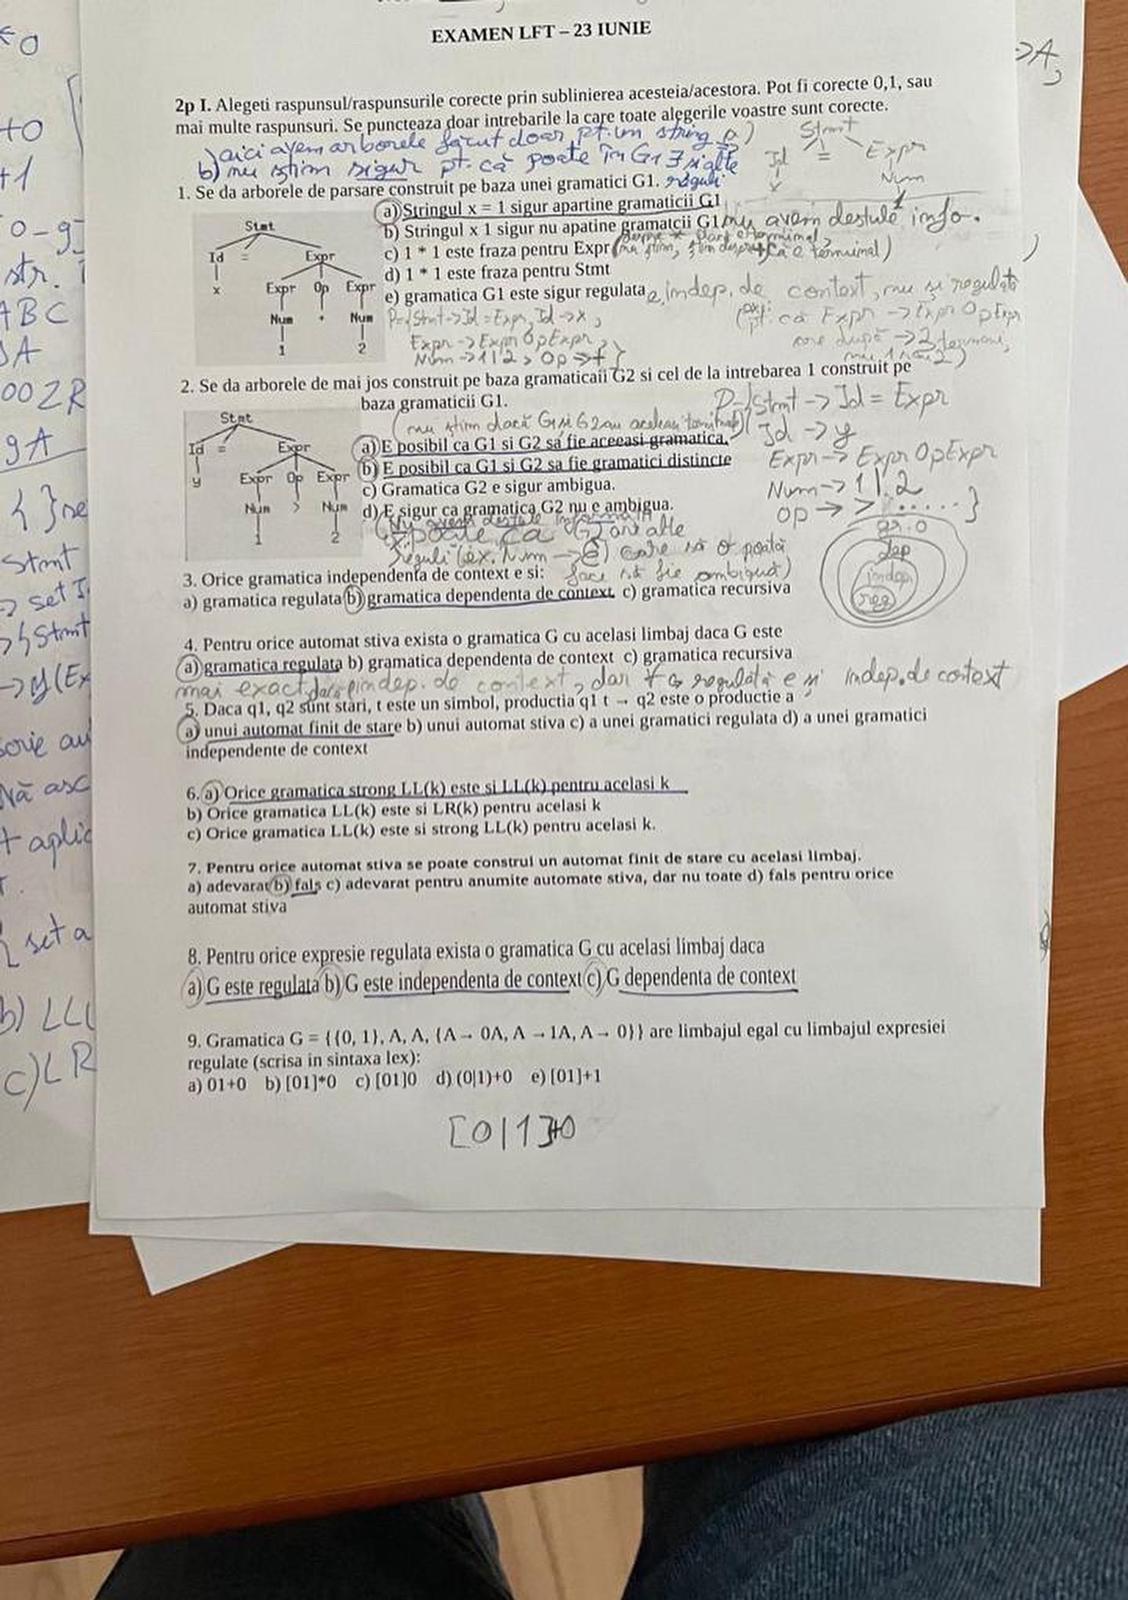 EXAMEN LFT – 23 IUNIE
2p I. Alegeti raspunsul/raspunsurile corecte prin sublinierea acesteia/acestora. Pot fi corecte 0,1, sau
mai multe raspunsuri. Se puncteaza doar intrebarile la care toate alegerile voastre sunt corecte.
a) aici avem arborele făcut doar pt. un string
b) nu știm sigur pt. că poate în G1 ∃ și alte
reguli
Stmt
Id = Expr
x Num
1
1. Se da arborele de parsare construit pe baza unei gramatici G1.
a) Stringul x = 1 sigur apartine gramaticii G1
b) Stringul x 1 sigur nu apatine gramatcii G1 nu avem destule info.
c) 1 * 1 este fraza pentru Expr
d) 1 * 1 este fraza pentru Stmt
e) gramatica G1 este sigur regulata e indep. de context, nu și regulată
Stmt
Id = Expr
x Expr Op Expr
Num + Num
1 2
P={Stmt->Id=Expr, Id->x,
Expr->Expr Op Expr,
Num->1|2, Op->+}
pt. că Expr->Expr Op Expr
are după -> 3 termeni,
nu 1 sau 2)
2. Se da arborele de mai jos construit pe baza gramaticaii G2 si cel de la intrebarea 1 construit pe
baza gramaticii G1.
(nu știm dacă G1 și G2 au aceleași terminale)
a) E posibil ca G1 si G2 sa fie aceeasi gramatica.
b) E posibil ca G1 si G2 sa fie gramatici distincte
c) Gramatica G2 e sigur ambigua.
d) E sigur ca gramatica G2 nu e ambigua.
Stmt
Id = Expr
y Expr Op Expr
Num > Num
1 2
P={Stmt -> Id = Expr
Id -> y
Expr-> Expr Op Expr
Num->1|2
Op -> > ..... }
(Nu avem destule informații
poate ca G2 are alte
reguli (ex. Num -> ε) care să o poată
face să fie ambiguă)
gr. 0
dep
indep
reg
3. Orice gramatica independenta de context e si:
a) gramatica regulata b) gramatica dependenta de context c) gramatica recursiva
4. Pentru orice automat stiva exista o gramatica G cu acelasi limbaj daca G este
a) gramatica regulata b) gramatica dependenta de context c) gramatica recursiva
mai exact dacă indep. de context, dar ∀ G regulată e și indep. de context
5. Daca q1, q2 sunt stari, t este un simbol, productia q1 t → q2 este o productie a
a) unui automat finit de stare b) unui automat stiva c) a unei gramatici regulata d) a unei gramatici
independente de context
6. a) Orice gramatica strong LL(k) este si LL(k) pentru acelasi k
b) Orice gramatica LL(k) este si LR(k) pentru acelasi k
c) Orice gramatica LL(k) este si strong LL(k) pentru acelasi k.
7. Pentru orice automat stiva se poate construi un automat finit de stare cu acelasi limbaj.
a) adevarat b) fals c) adevarat pentru anumite automate stiva, dar nu toate d) fals pentru orice
automat stiva
8. Pentru orice expresie regulata exista o gramatica G cu acelasi limbaj daca
a) G este regulata b) G este independenta de context c) G dependenta de context
9. Gramatica G = {{0, 1}, A, A, {A → 0A, A → 1A, A → 0}} are limbajul egal cu limbajul expresiei
regulate (scrisa in sintaxa lex):
a) 01+0 b) [01]*0 c) [01]0 d) (0|1)+0 e) [01]+1
[0|1]+0